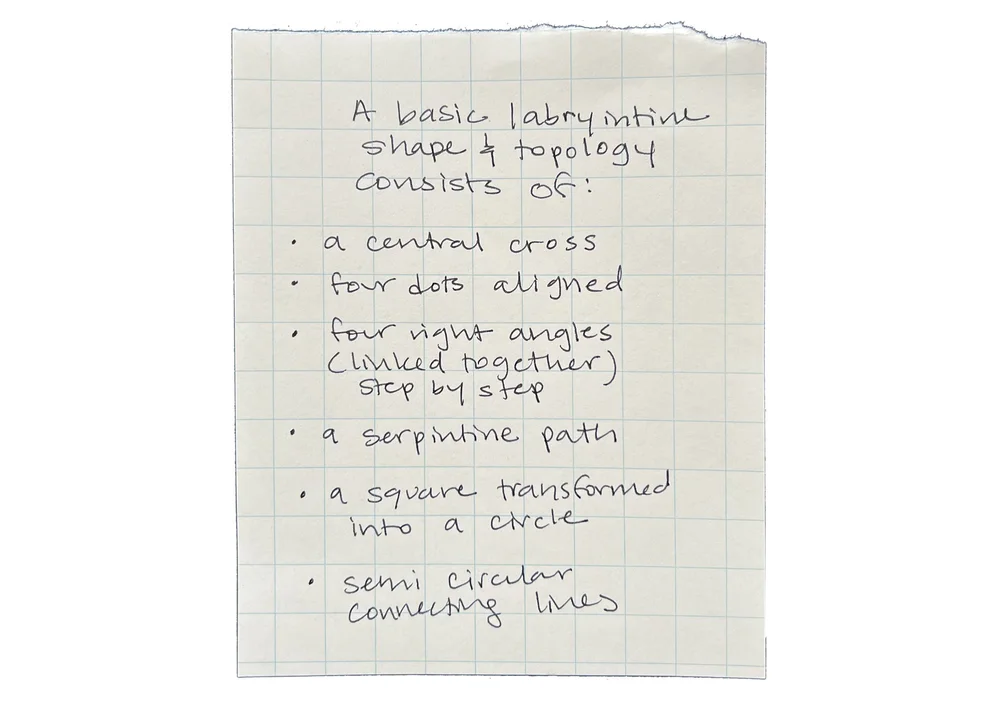 A basic labryintine
shape & topology
consists of:
· a central cross
· four dots aligned
· four right angles
(linked together)
step by step
· a serpintine path
· a square transformed
into a circle
· semi circular
connecting lines